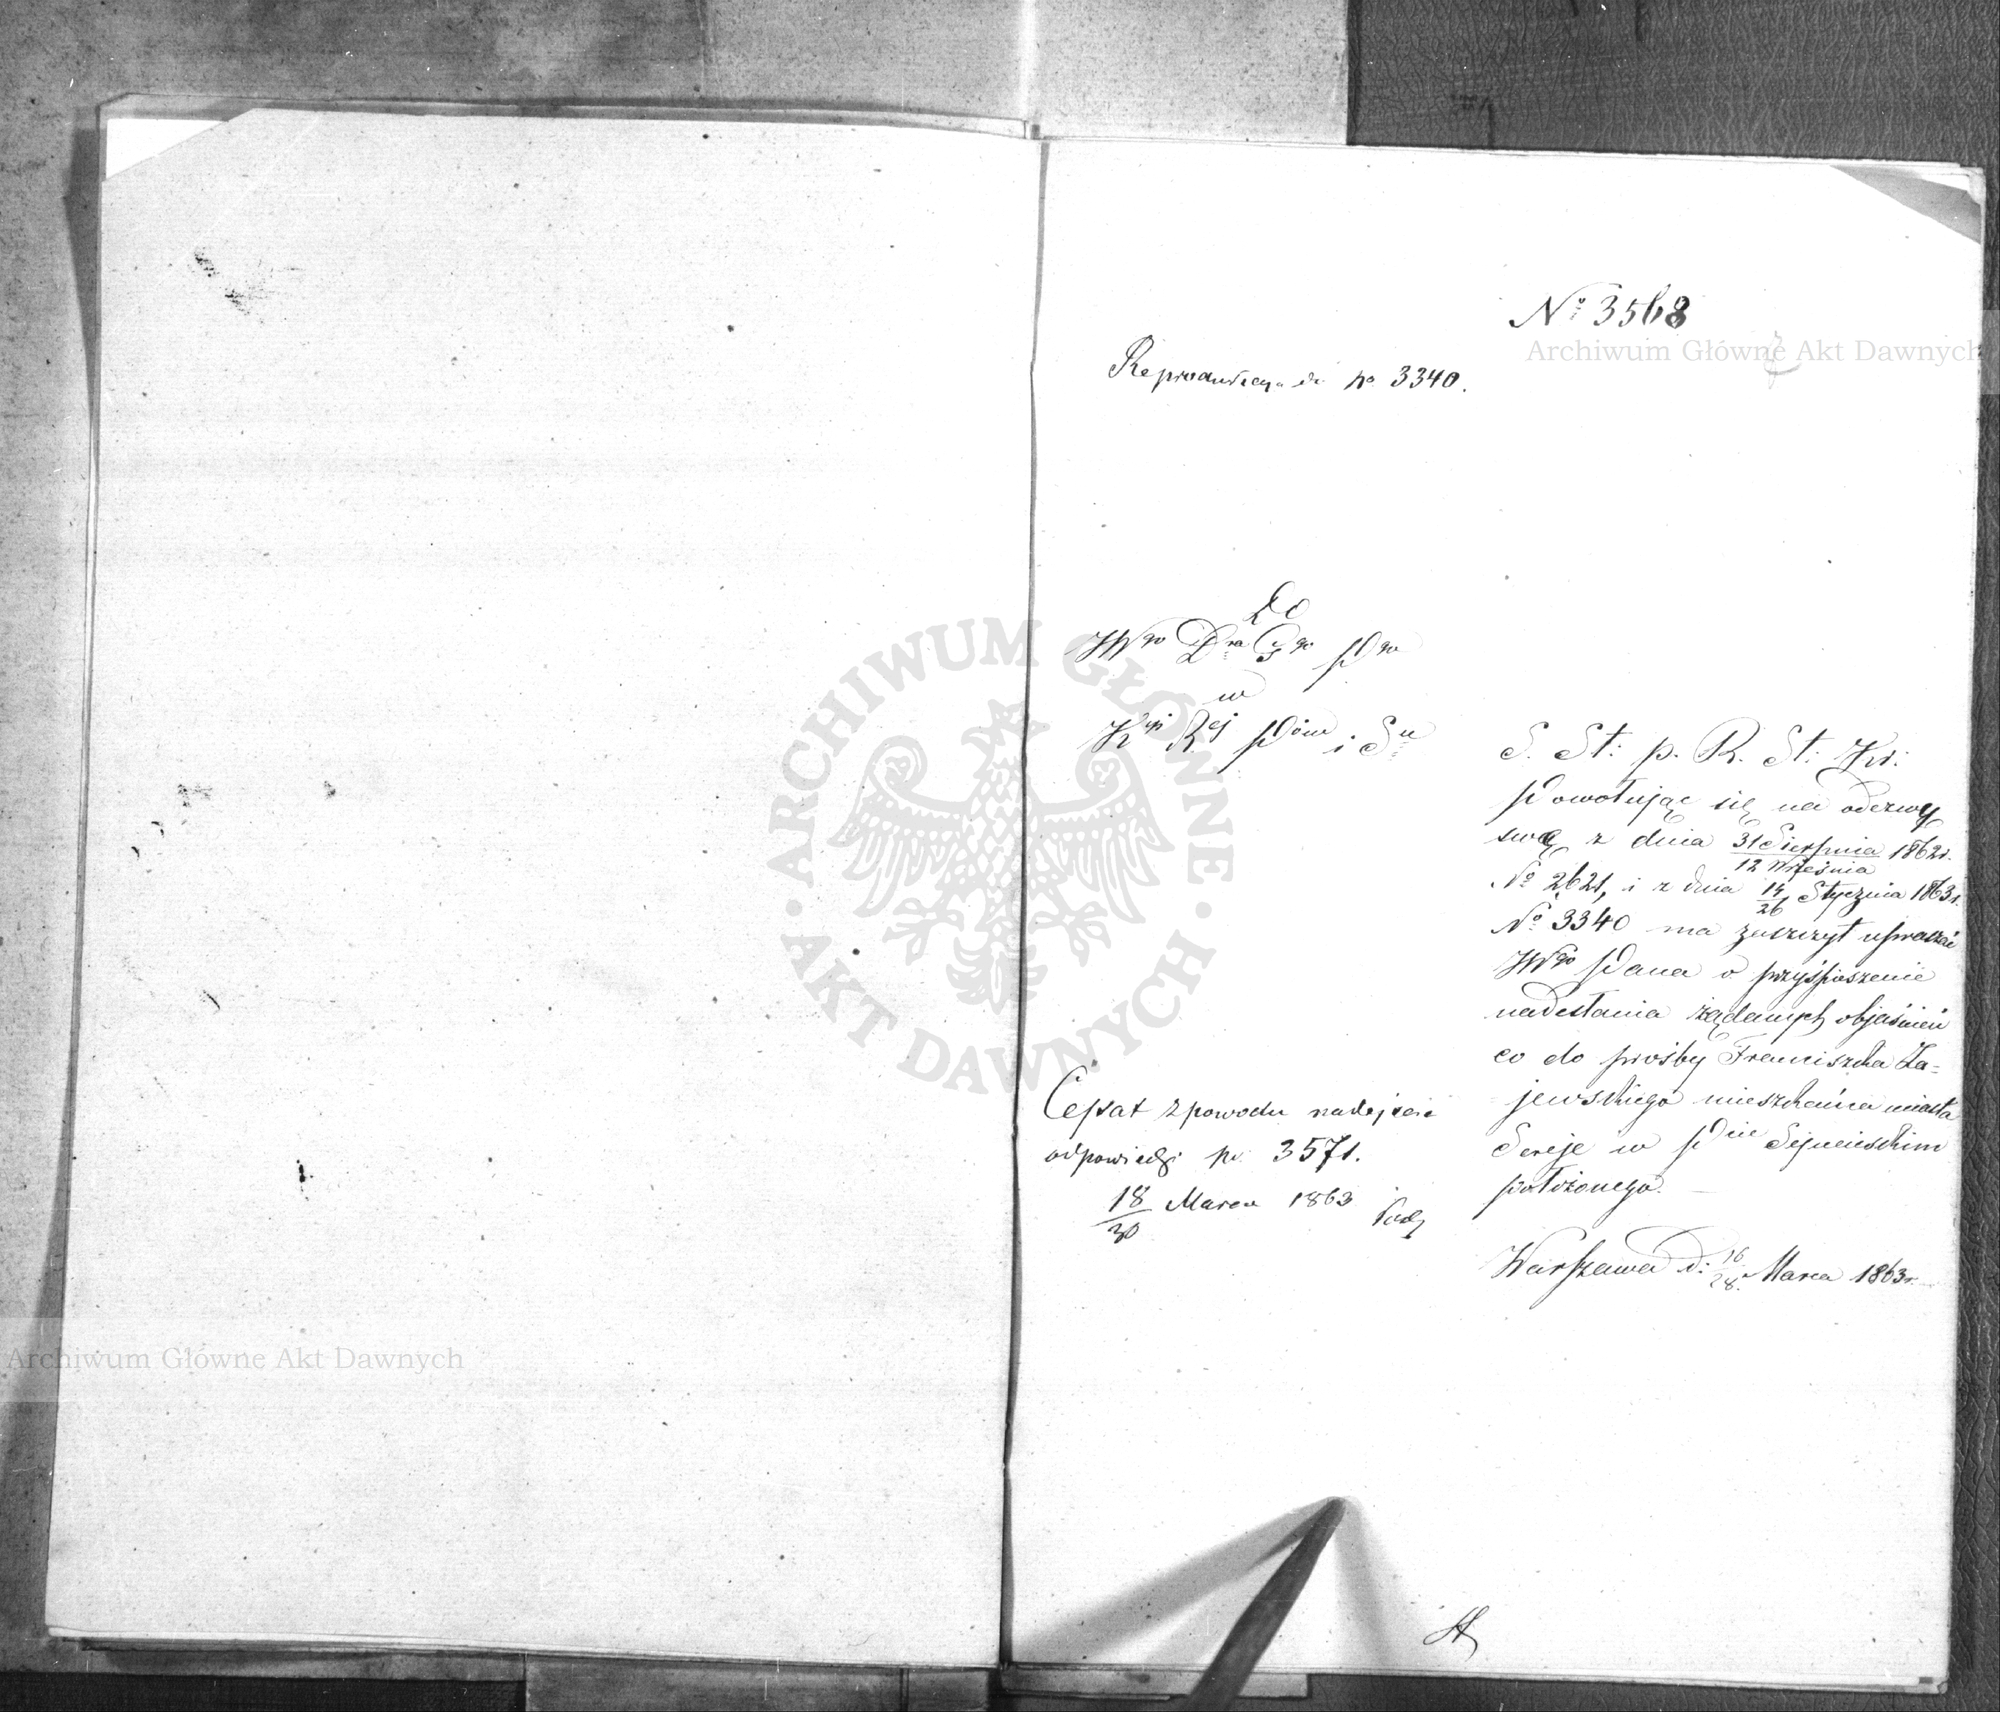 No 3568
Reprodukcya do No 3340.
Do
Wgo Dra Ggo Pgo
w
Kyi Rej
S. St: p. R. St: Kr:
Powołując się na odezwy
swe z dnia 31 Sierpnia 1862 r.
12 Września
No 2621, i z dnia 14 Stycznia 1863 r.
26
No 3340 ma zaszczyt upraszać
Wgo Pana o przyśpieszenie
nadesłania żądanych objaśnień
co do prośby Franciszka Za=
jewskiego mieszkańca miasta
Sereje w Pcie Sejneńskim
położonego. —
Warszawa d: 16 Marca 1863 r.
28.
Cessat z powodu nadejścia
odpowiedzi No 3571.
18 Marca 1863
30
Archiwum Główne Akt Dawnych
Archiwum Główne Akt Dawnych
ARCHIWUM GŁÓWNE · AKT DAWNYCH ·